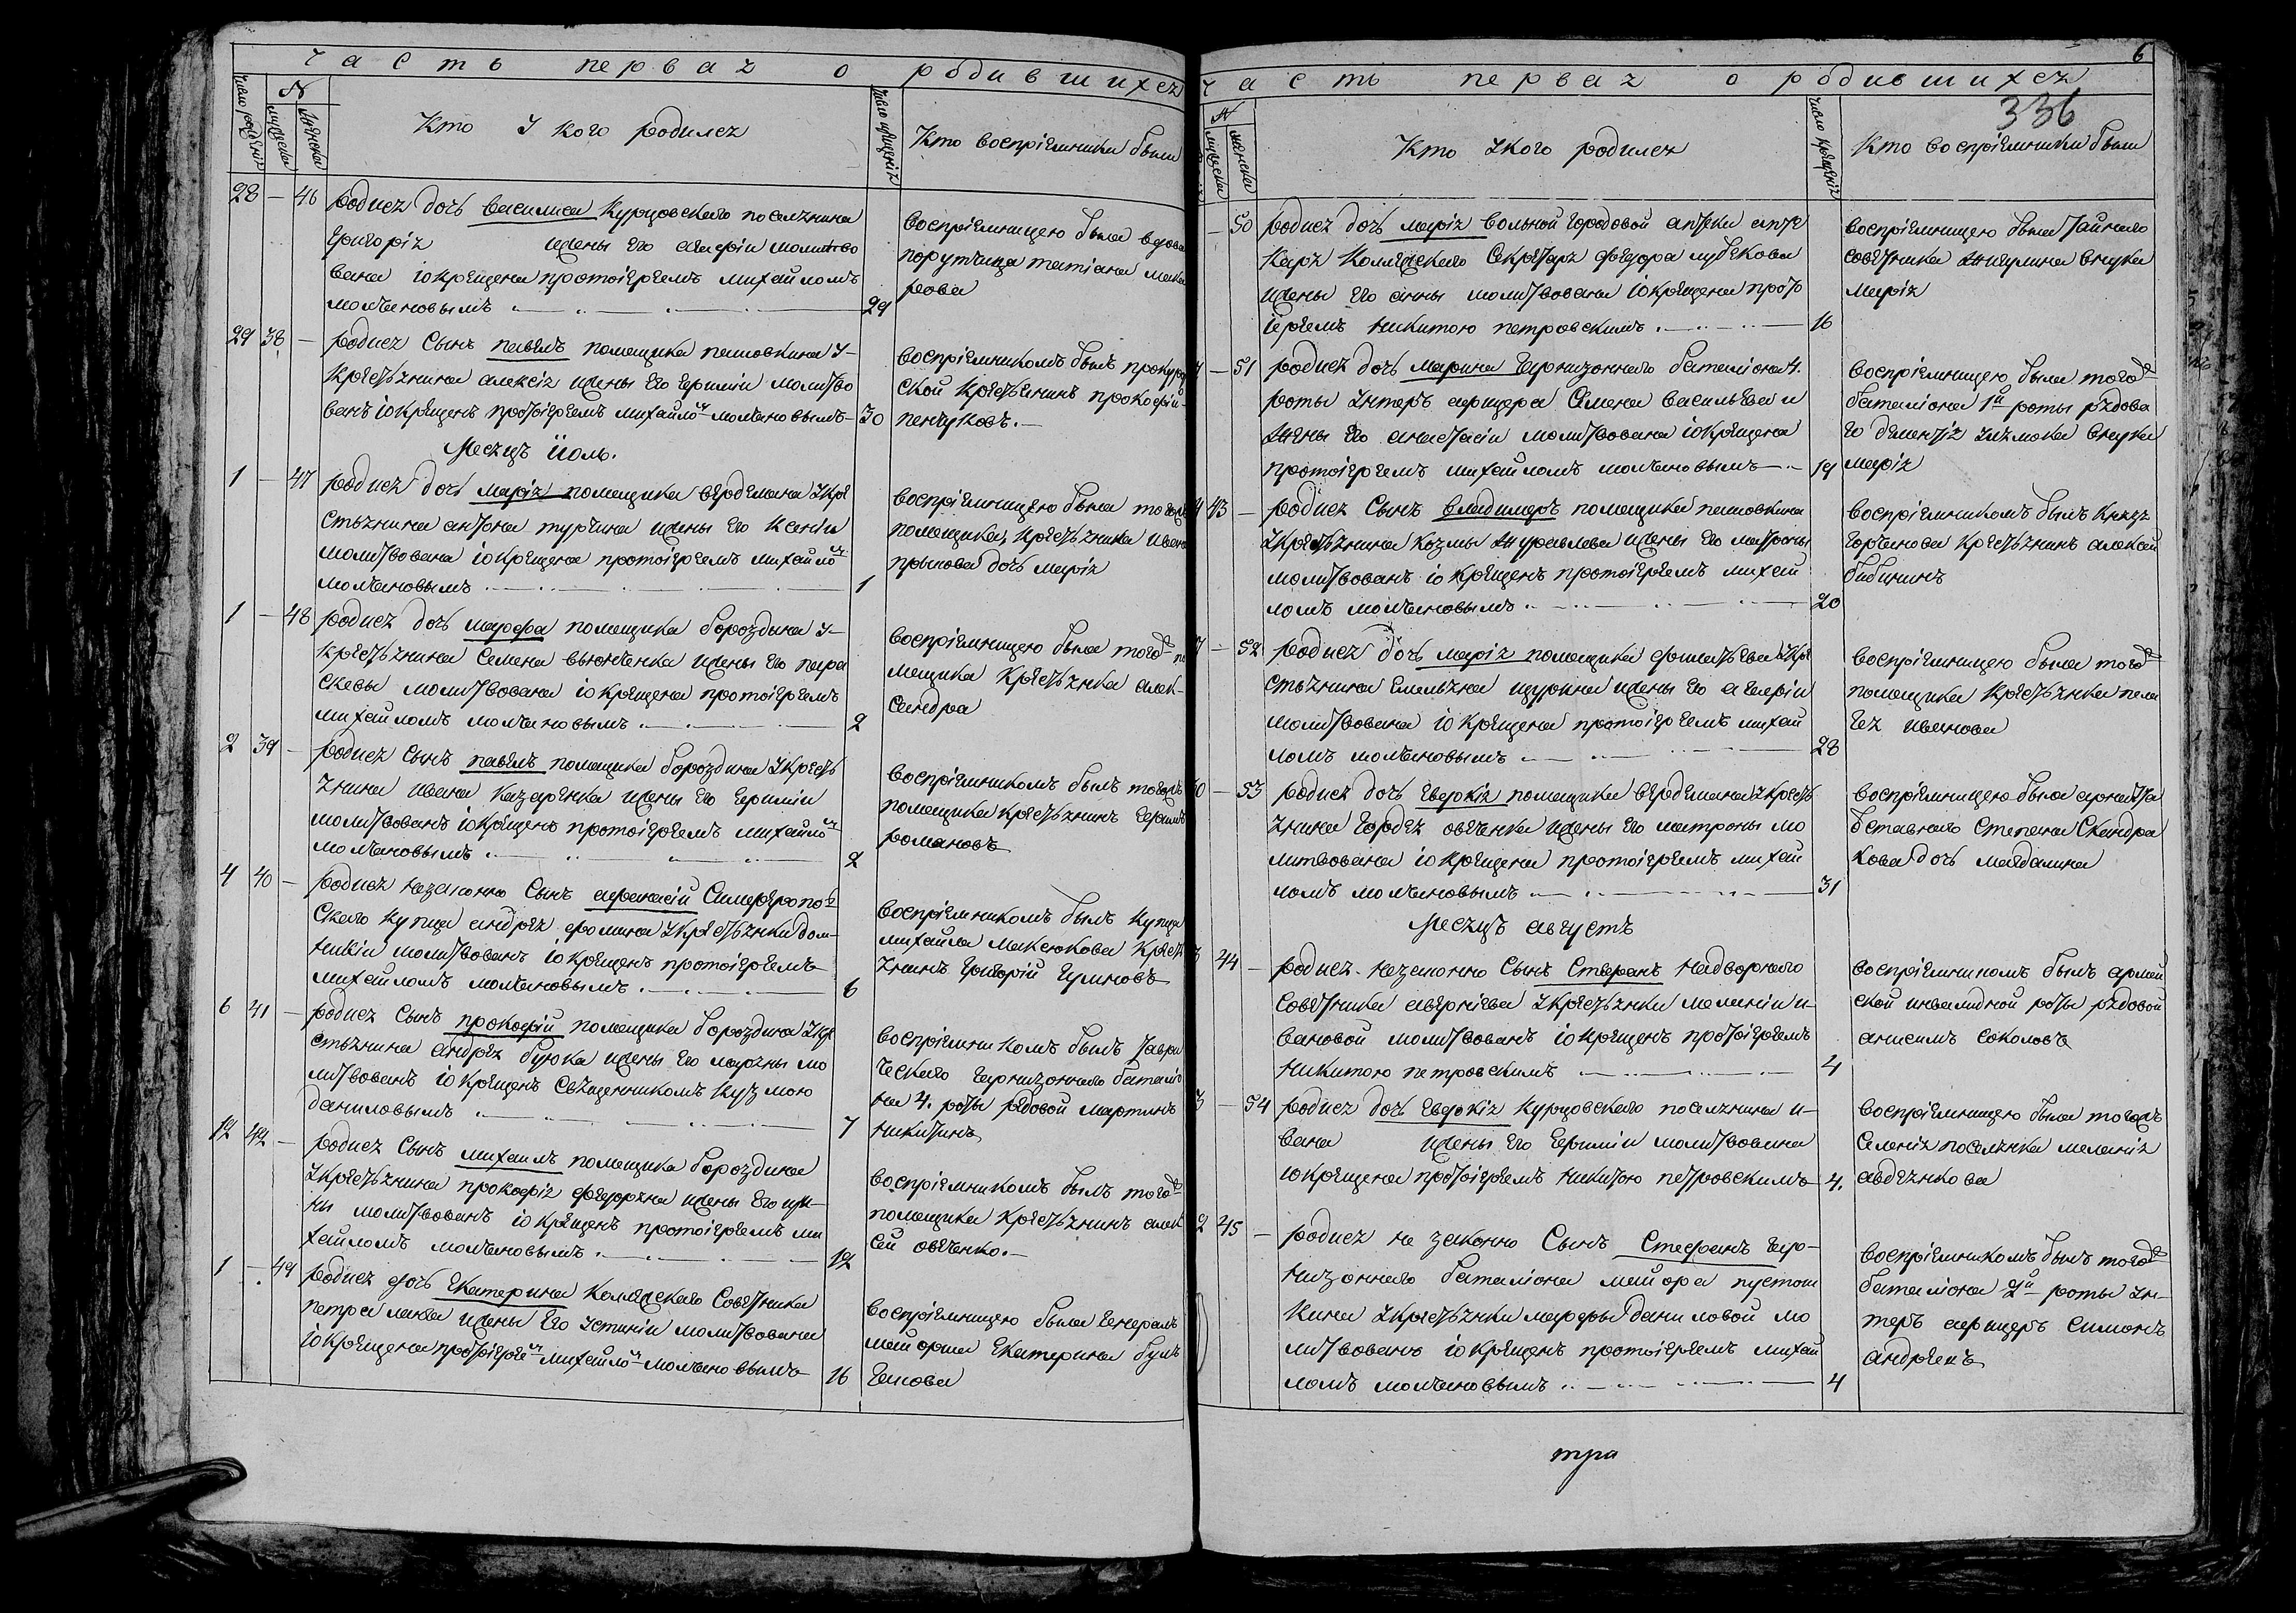 часть первая о родившихся
число рожденія
№
мужеска
женска
Кто у кого родился
число крещенія
Кто воспріемники были
28 — 46 родися дочь василиса Курцовского поселянина
Григорія жены его агафіи молитво
вана и окрещена протоіереемъ михаиломъ
молчановымъ 29
воспріемницею была вдова
порутчица татіана мака
рова
29 38 — родися Сынъ павелъ помещика пашовкина у
крестьянина алексія жены его Ефиміи молитво
ванъ и окрещенъ протоіереемъ михаиломъ молчановымъ 30
воспріемникомъ былъ
ской крестьянинъ прокофій
Месяцъ іюль.
1 — 47 родися дочь марія помещика вердемана у кре
стьянина антона турчина жены его Ксеніи
молитвована и окрещена протоіереемъ михаиломъ
молчановымъ 1
воспріемницею была тогожъ
помещика крестьянина ивана
прынова дочь марія
1 — 48 родися дочь марфа помещика бороздина у
крестьянина Семена вьюнченка жены его пара
скевы молитвована и окрещена протоіереемъ
михаиломъ молчановымъ 2
воспріемницею была тогожъ по
мещика крестьянка алек
сандра
2 39 — родися сынъ павелъ помещика бороздина у кресть
янина ивана казаренка жены его Ефиміи
молитвованъ и окрещенъ протоіереемъ михаиломъ
молчановымъ 2
воспріемникомъ былъ тогожъ
помещика крестьянинъ Ефимъ
романовъ
4 40 — родися незаконно Сынъ афанасій Симферополь
скаго купца андрея фомина у крестьянки дом
никіи молитвованъ и окрещенъ протоіереемъ
михаиломъ молчановымъ 6
воспріемникомъ былъ купца
михаила Максюкова кресть
янинъ григорій
6 41 — родися Сынъ прокофій помещика бороздина у кре
стьянина андрея буюка жены его марфы мо
литвованъ и окрещенъ Священникомъ Кузмою
даниловымъ 7
воспріемникомъ былъ таври
ческаго гарнизоннаго баталіо
на 4. роты рядовой мартинъ
никитинъ
12 42 — родися Сынъ михаилъ помещика бороздина
у крестьянина прокофія жены его ири
ны молитвованъ и окрещенъ протоіереемъ ми
хаиломъ молчановымъ 12
воспріемникомъ былъ тогожъ
помещика крестьянинъ алек
сей овченко.
1 — 49 родися дочь Екатерина Коллежскаго Советника
петра ланга жены его устиніи молитвована
и окрещена протоіереемъ михаиломъ молчановымъ 16
воспріемницею была генералъ
маіорша Екатерина
6
336
часть первая о родившихся
№
мужеска
женска
Кто у кого родился
число крещенія
Кто воспріемники были
— 50 родися дочь марія вольной городовой аптеки апте
каря Коллежскаго Секретаря федора
жены его анны молитвована и окрещена прото
іереемъ никитою петровскимъ 16
воспріемницею была тайнаго
советника жегулина внука
марія
— 51 родися дочь марина гарнизоннаго баталіона 4.
роты унтеръ афицера Семена васильева и
жены его анастасіи молитвована и окрещена
протоіереемъ михаиломъ молчановымъ 19
воспріемницею была тогожъ
баталіона 1й роты рядова
го внука
марія
43 — родися Сынъ владимеръ помещика пашовкина
у крестьянина козмы журавлева жены его матроны
молитвованъ и окрещенъ протоіереемъ михаи
ломъ молчановымъ 20
воспріемникомъ былъ князя
горчакова крестьянинъ алексей
бабичинъ
— 52 родися дочь марія помещика у кре
стьянина Емельяна жены его агафіи
молитвована и окрещена протоіереемъ михаи
ломъ молчановымъ 28
воспріемницею была тогожъ
помещика крестьянка пела
гея иванова
— 53 родися дочь Евдокія помещика вердемана у кресть
янина гордея овченка жены его матроны мо
литвована и окрещена протоіереемъ михаи
ломъ молчановымъ 31
воспріемницею была
отставнаго Степана
дочь магдалина
Месяцъ августъ
3 44 — родися незаконно Сынъ Стефанъ надворнаго
советника у крестьянки меланіи и
вановой молитвованъ и окрещенъ протоіереемъ
никитою петровскимъ 4
воспріемникомъ былъ армей
ской инвалидной роты рядовой
анисимъ соколовъ
3 — 54 родися дочь Евдокія Курцовскаго поселянина и
вана жены его Ефиміи молитвована
и окрещена протоіереемъ никитою петровскимъ 4.
воспріемницею была тогожъ
селенія поселянка меланія
авдеянкова
2 45 — родися не законно Сынъ Стефанъ гар
низоннаго баталіона маіора пустош
кина у крестьянки марфы даниловой мо
литвованъ и окрещенъ протоіереемъ михаи
ломъ молчановымъ 4
воспріемникомъ былъ тогожъ
баталіона 2й роты ун
теръ афицеръ Симонъ
андреевъ
три